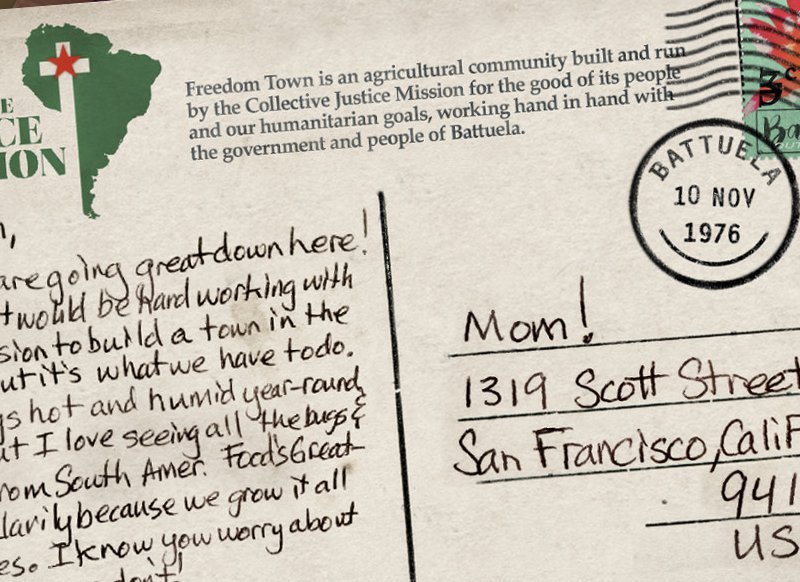 Freedom Town is an agricultural community built and run
by the Collective Justice Mission for the good of its people
and our humanitarian goals, working hand in hand with
the government and people of Battuela.
3c
BATTUELA
10 NOV
1976
are going great down here!
would be hard working with
to build a town in the
it's what we have todo.
hot and humid year-round,
I love seeing all the bugs &
South Amer. Food's Great-
because we grow it all
I know you worry about
don't!
Mom!
1319 Scott Street
San Francisco, Calif
941
US